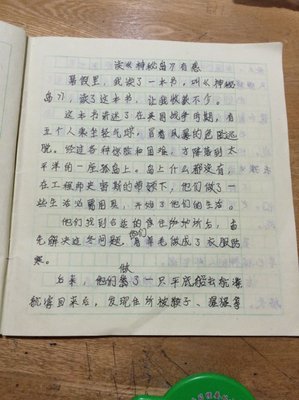 读《神秘岛》有感
暑假里，我读了一本书，叫《神秘
岛》，读了这本书，让我收获不少。
这本书讲述了在美国战争时期，有
五个人乘坐轻气球，冒着风暴的危险逃
脱。经过各种惊险和困难，方降落到太
平洋的一座孤岛上。岛上什么都没有
在工程师史密斯的带领下，他们做了一
些生活必需用品，开始了他们的生活。
他们找到合适的居住护所后，首
先解决过冬问题，他们着羊毛做成了衣服防
寒。
后来，他们做了一只平底船
回来后，发现住所被猴子、猩猩等